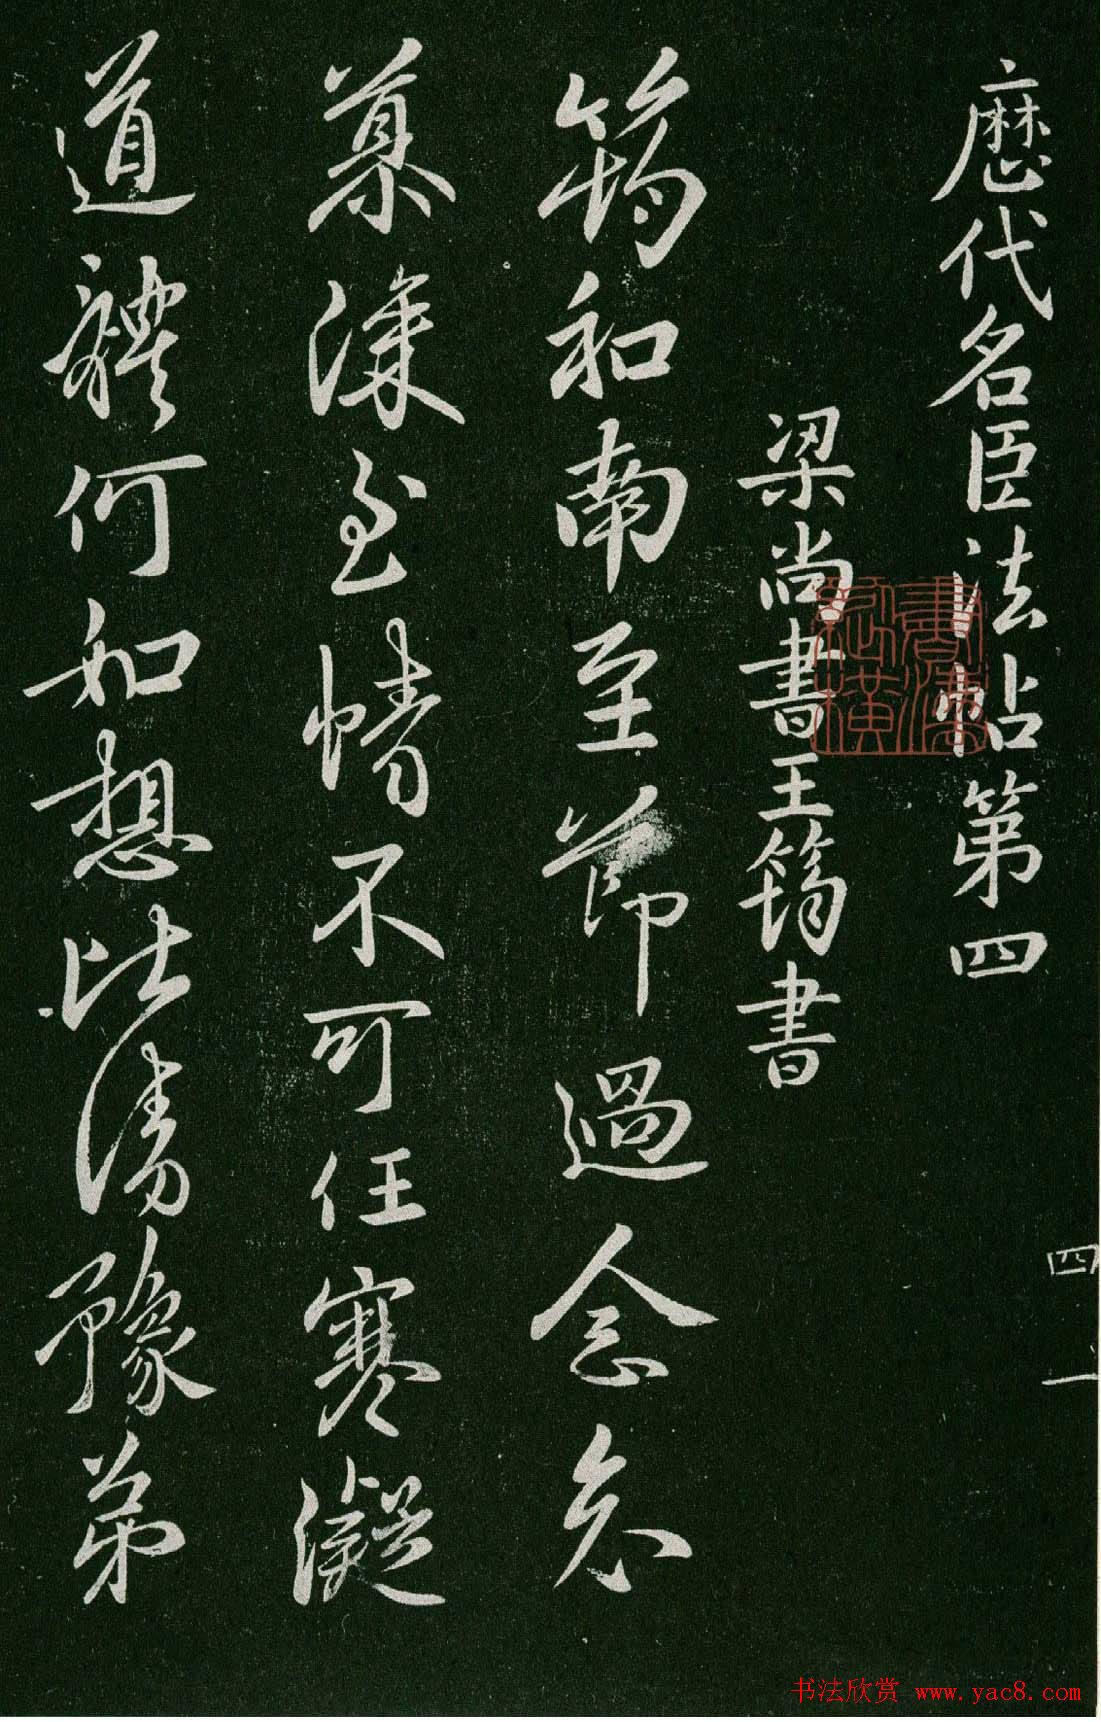 歷代名臣法帖第四
梁尚書王筠書
筠和南至節過念念
纂深至情不可任寒凝
道體何如想比清豫弟
四
一
书法欣赏 www.yac8.com